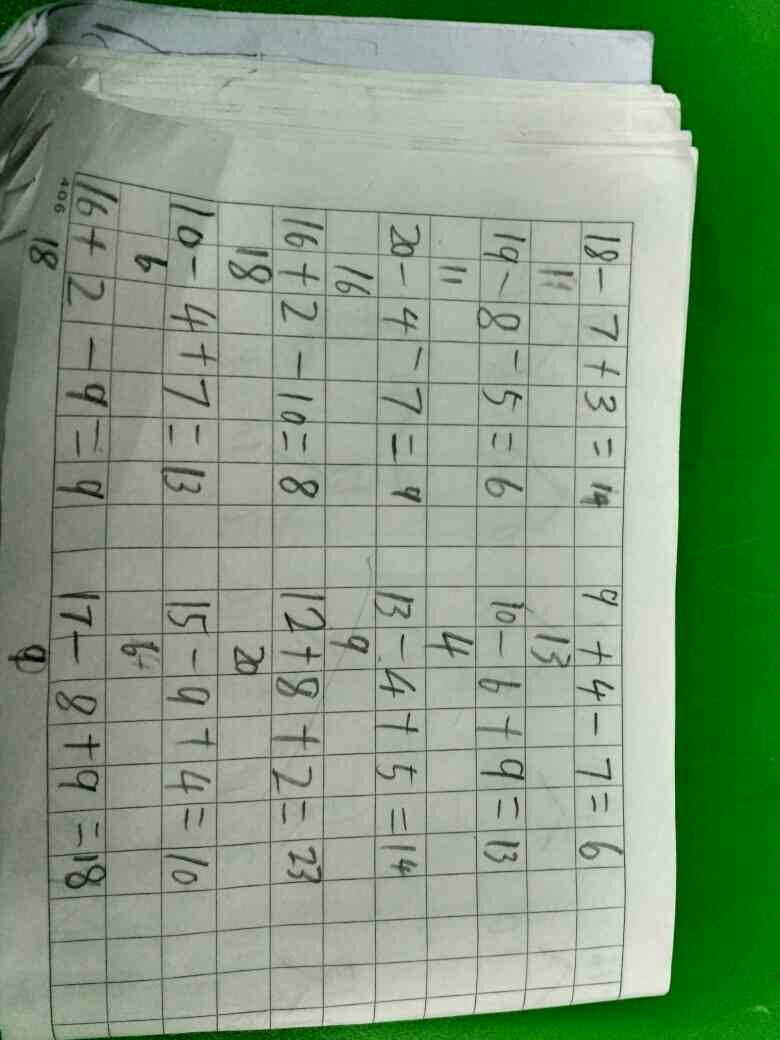 18-7+3=14 9+4-7=6
11 13
19-8-5=6 10-6+9=13
11 4
20-4-7=9 13-4+5=14
16 9
16+2-10=8 12+8+2=23
18 20
10-4+7=13 15-9+4=10
6 6
16+2-9=9 17-8+9=18
406 18 9